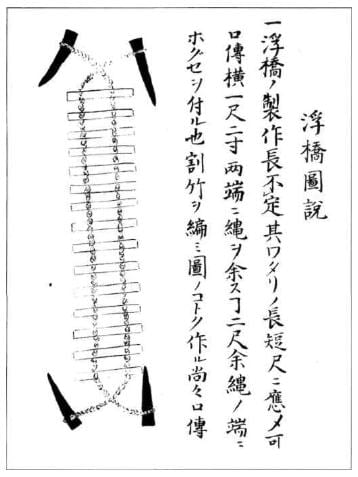 浮橋圖說
一浮橋ノ製作長不定其ワタリノ長短尺ニ應メ可
口傳橫一尺二寸両端ニ縄ヲ余スヿ二尺余縄ノ端ニ
ホグセヲ付ル也割竹ヲ編ミ圖ノコトク作ル尚々口傳